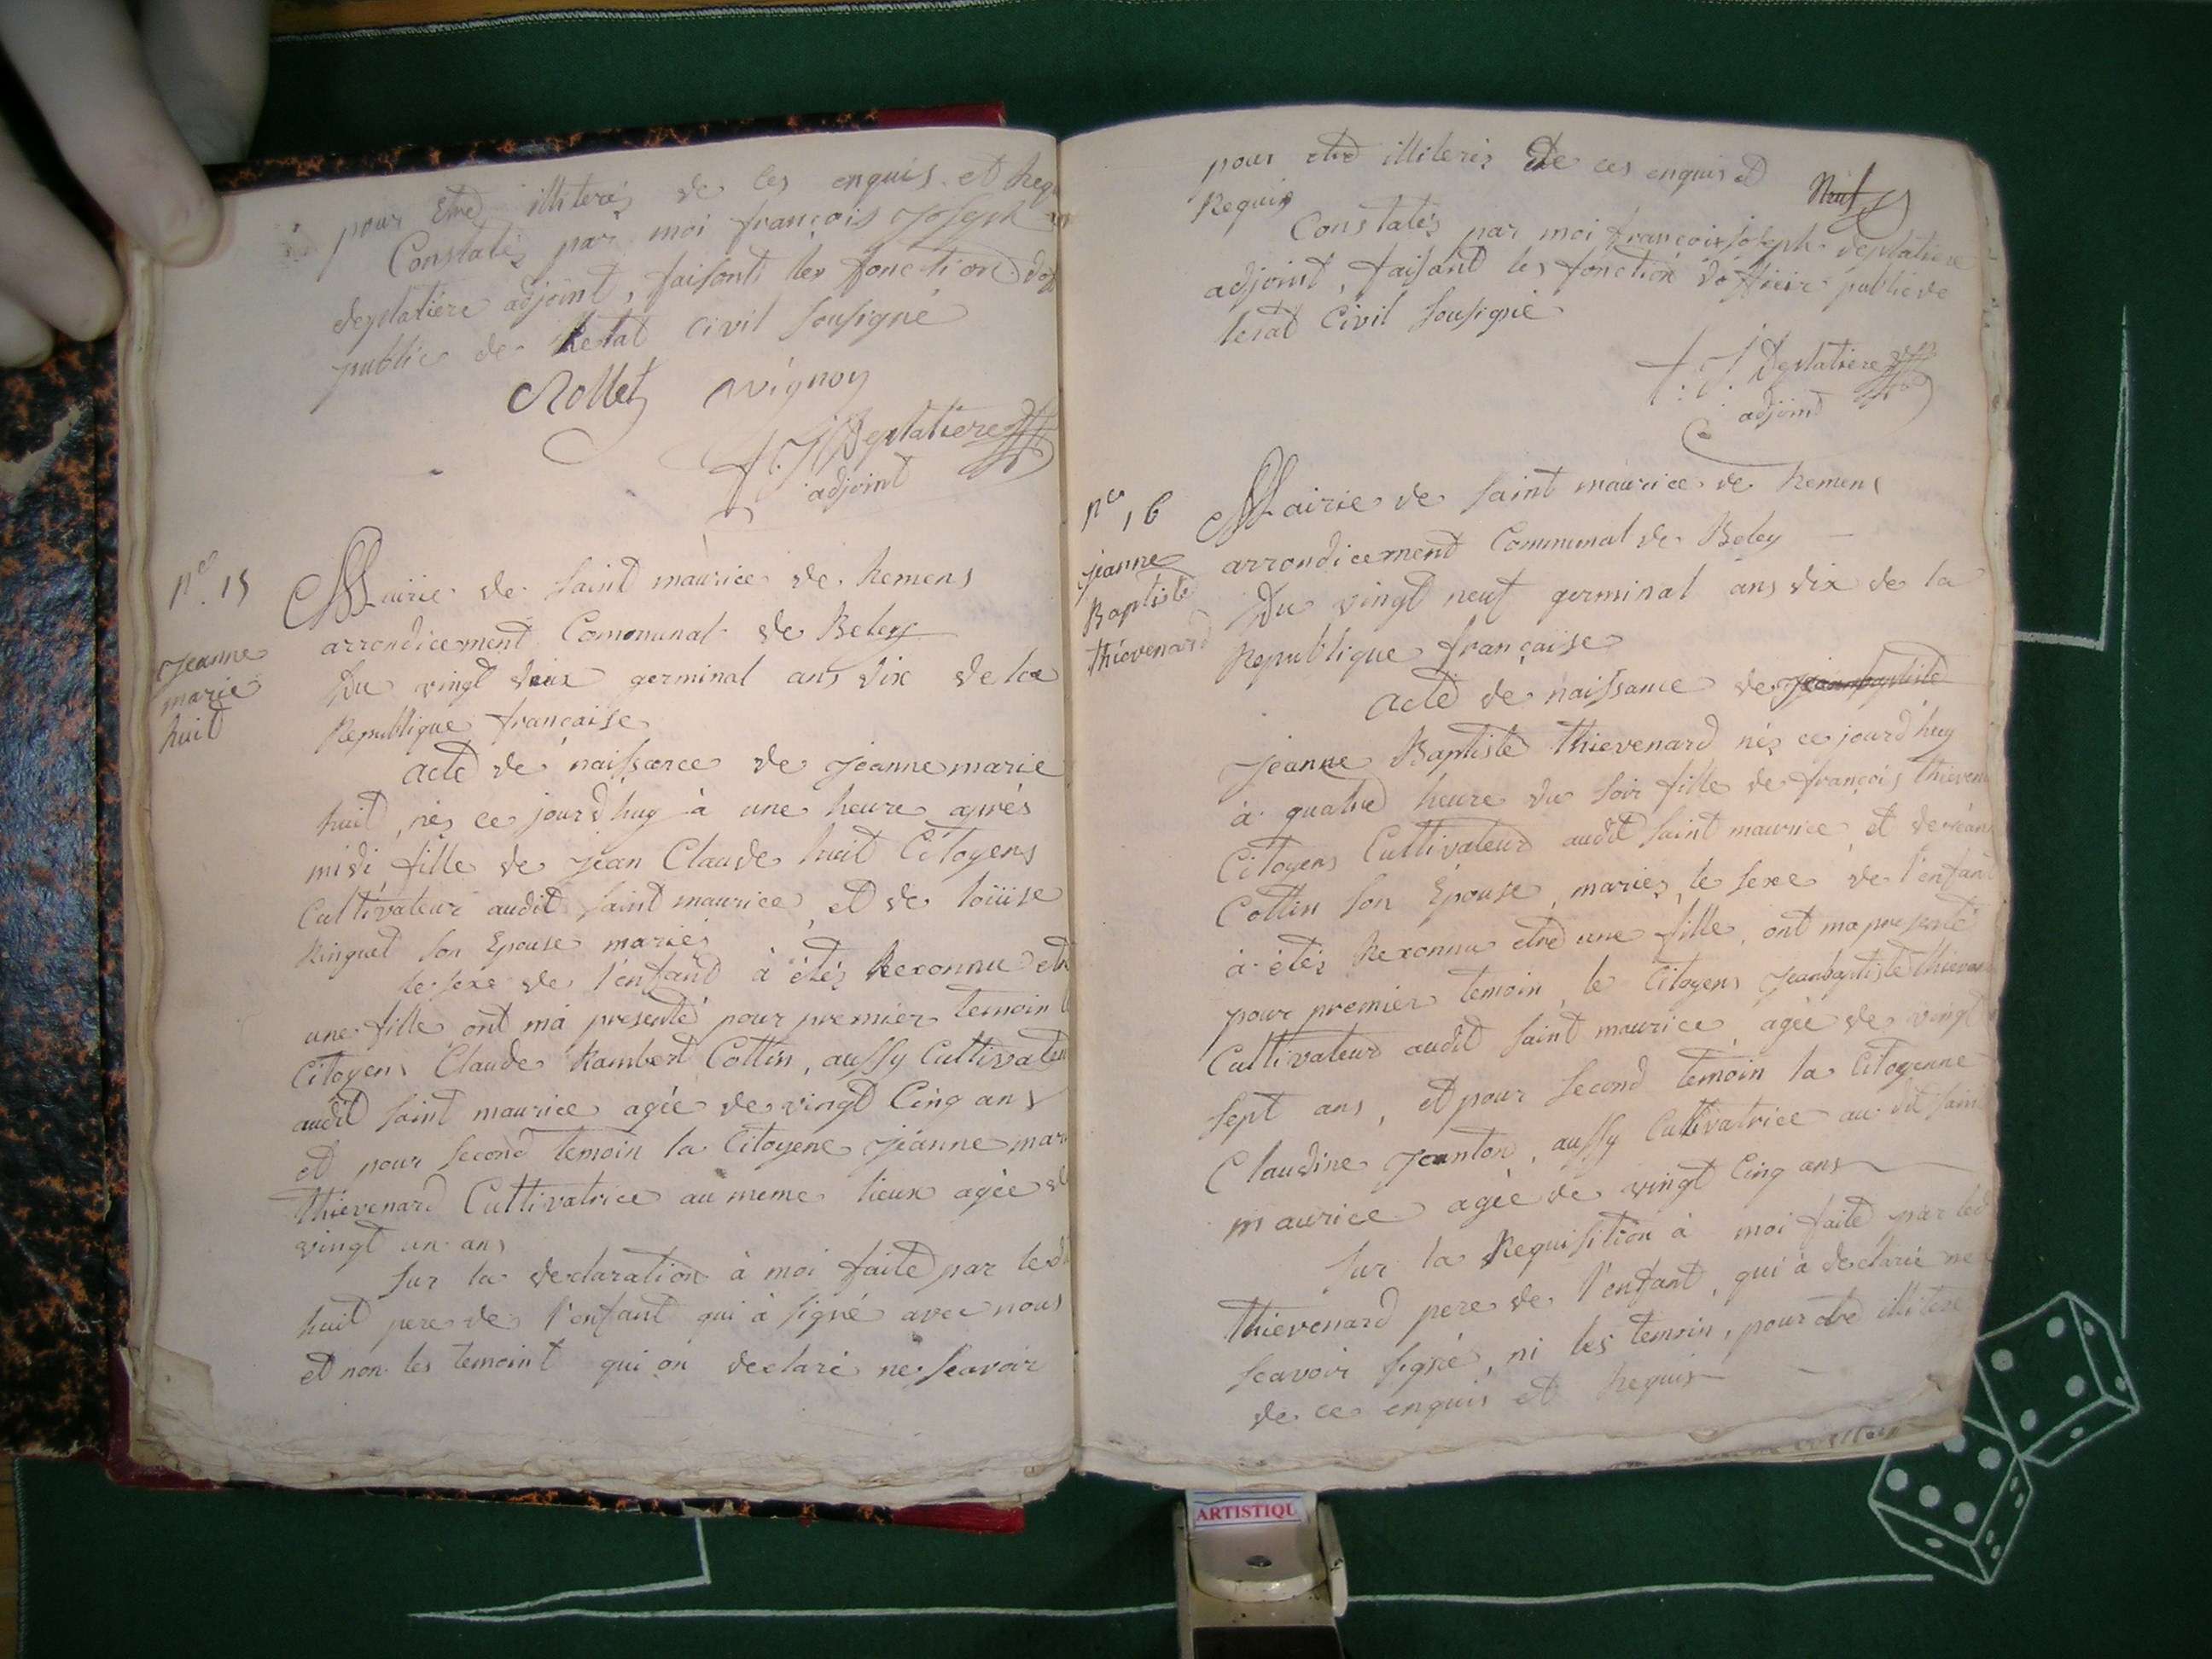 pour Etre illiterés de ces enquis et Requ
Constatés par moi françois Joseph
deplatiere adjoint, faisant les fonction dof
public de Letat civil sousigné
Rollet Vignoy
f. J Deplatiere
adjoint
n.º 15
Jeanne
marie
huit
Mairie de saint maurice de Remens
arrondicement Communal de Beley
Du vingt deux germinal ans dix de la
Republique francaise
acte de naissance de jeanne marie
huit, nés ce jourd'huy à une heure aprés
midi fille de jean Claude huit Citoyens
Cultivateur audit saint maurice, et de loüise
Ringuet son Epouse mariés
le sexe de l'enfant à étés Reconnu etre
une fille ont ma presenté pour premier temoin l
Citoyens Claude Rambert Cottin, aussy Cultivateu
audit saint maurice agée de vingt Cinq ans
et pour second temoin la Citoyene jéanne mari
thievenard Cultivatrice au meme lieux agée d
vingt un ans
sur la declaration à moi faite par ledi
huit pere de l'enfant qui à signé avec nous
et non les temoint qui on declaré ne scavoir
pour etre illiterés De ces enquis et
Requis
Huit
Constatés par moi françois joseph deplatiere
adjoint, faisant les fonction dofficier public de
letat Civil sousigné
f. J Deplatiere
adjoint
n.º 16
jeanne
Baptiste
thievenard
Mairie de saint maurice de Remens
arrondicement Communal de Beley
Du vingt neuf germinal ans dix de la
Republique française
acte de naissance de jeanbaptiste
Jeanne Baptiste thievenard nés ce jourd'huy
à quatre heure du soir fille de françois thieven
Citoyens Cultivateur audit saint maurice et de jéann
Cottin son Epouse, mariés, le sexe de l'enfant
à étés Reconnu etre une fille, ont ma presenté
pour premier temoin, le Citoyens Jeanbaptiste thieven
Cultivateur audit saint maurice agée de vingt
sept ans, et pour second temoin la Citoyenne
Claudine Janton, aussy Cultivatrice au dit saint
maurice agée de vingt Cinq ans
sur la Requisition à moi faite par led
thievenard pere de l'enfant, qui à declaré ne
scavoir signé, ni les temoin, pour etre illiteré
de ce enquis et Requis
ARTISTIQU